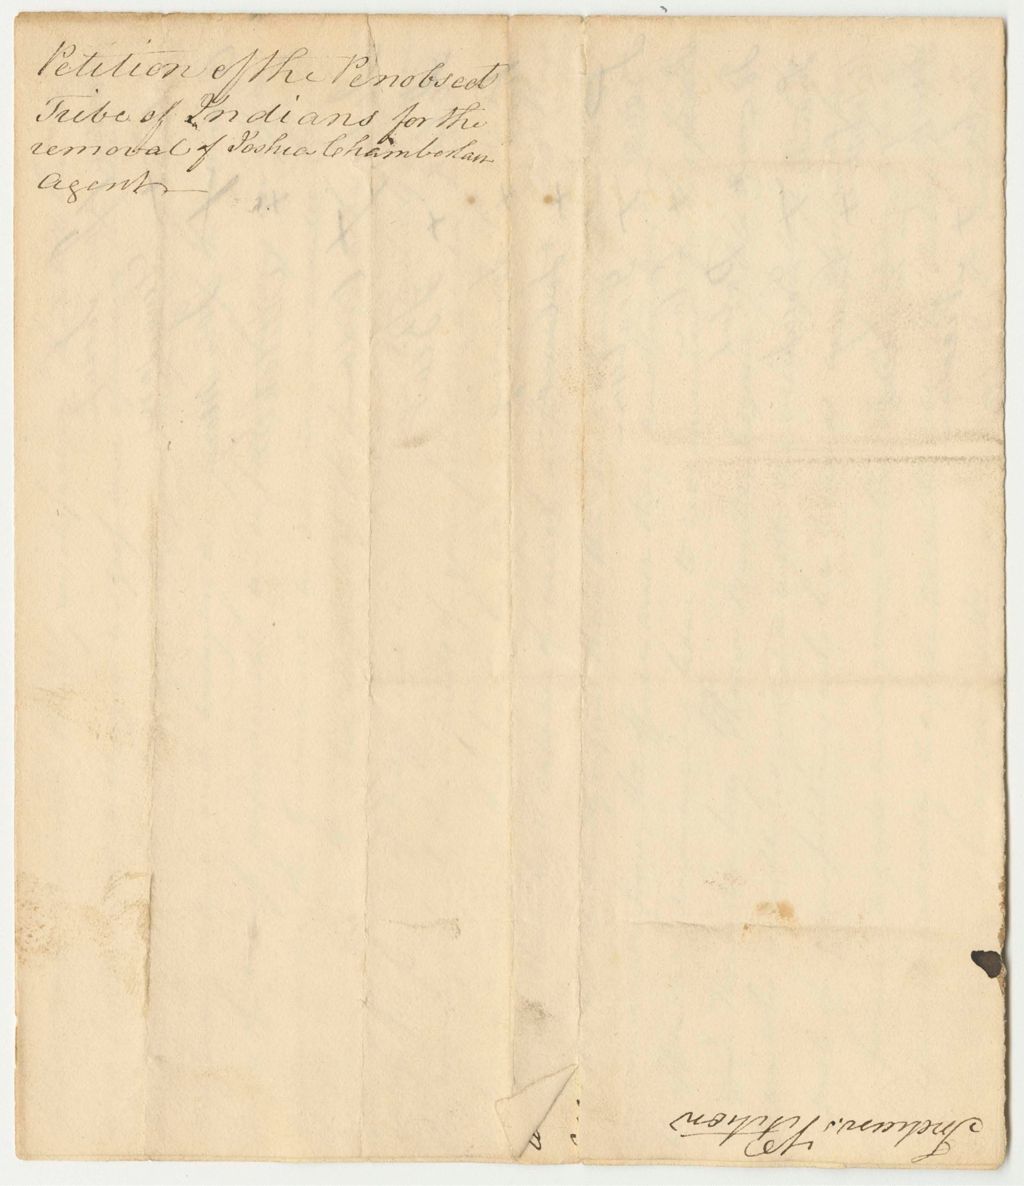 Petition of the Penobscot
Tribe of Indians for the
removal of Joshua Chamberlain
Agent
Indians Petition